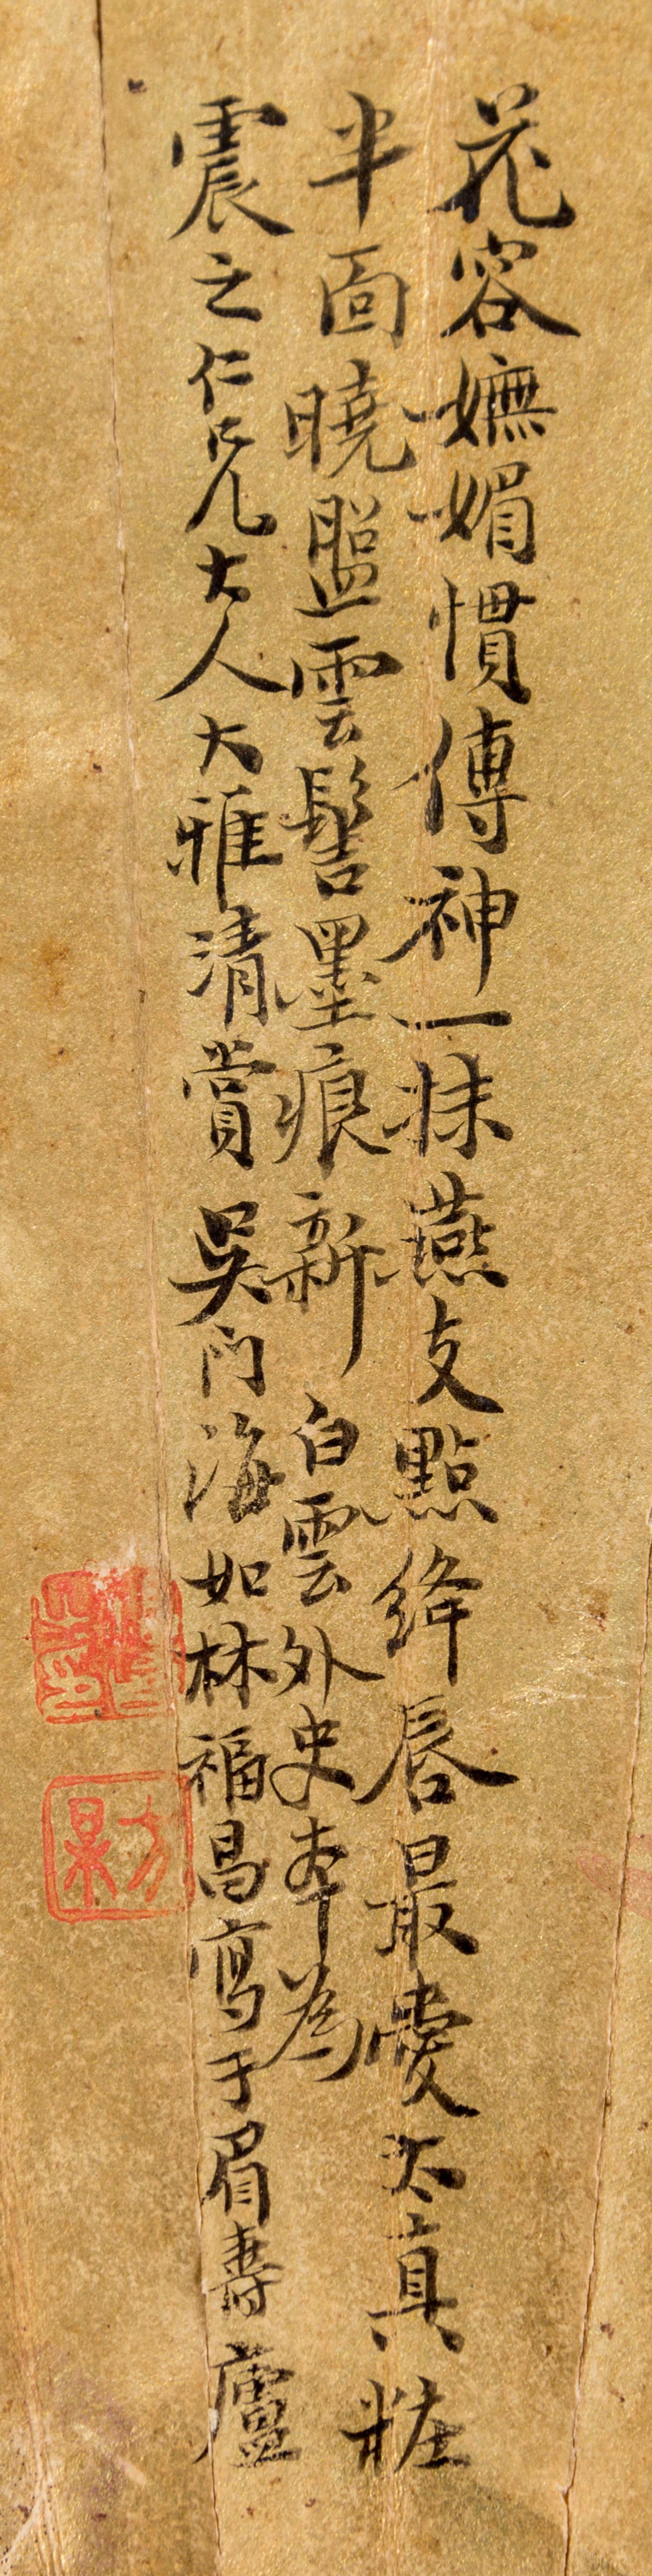 花容嫵媚慣傳神一抹燕支點絳唇最愛太真粧
半面曉盤雲髻墨痕新 白雲外史本為
震之仁兄大人大雅清賞 吳門海如林福昌寫于眉壽廬